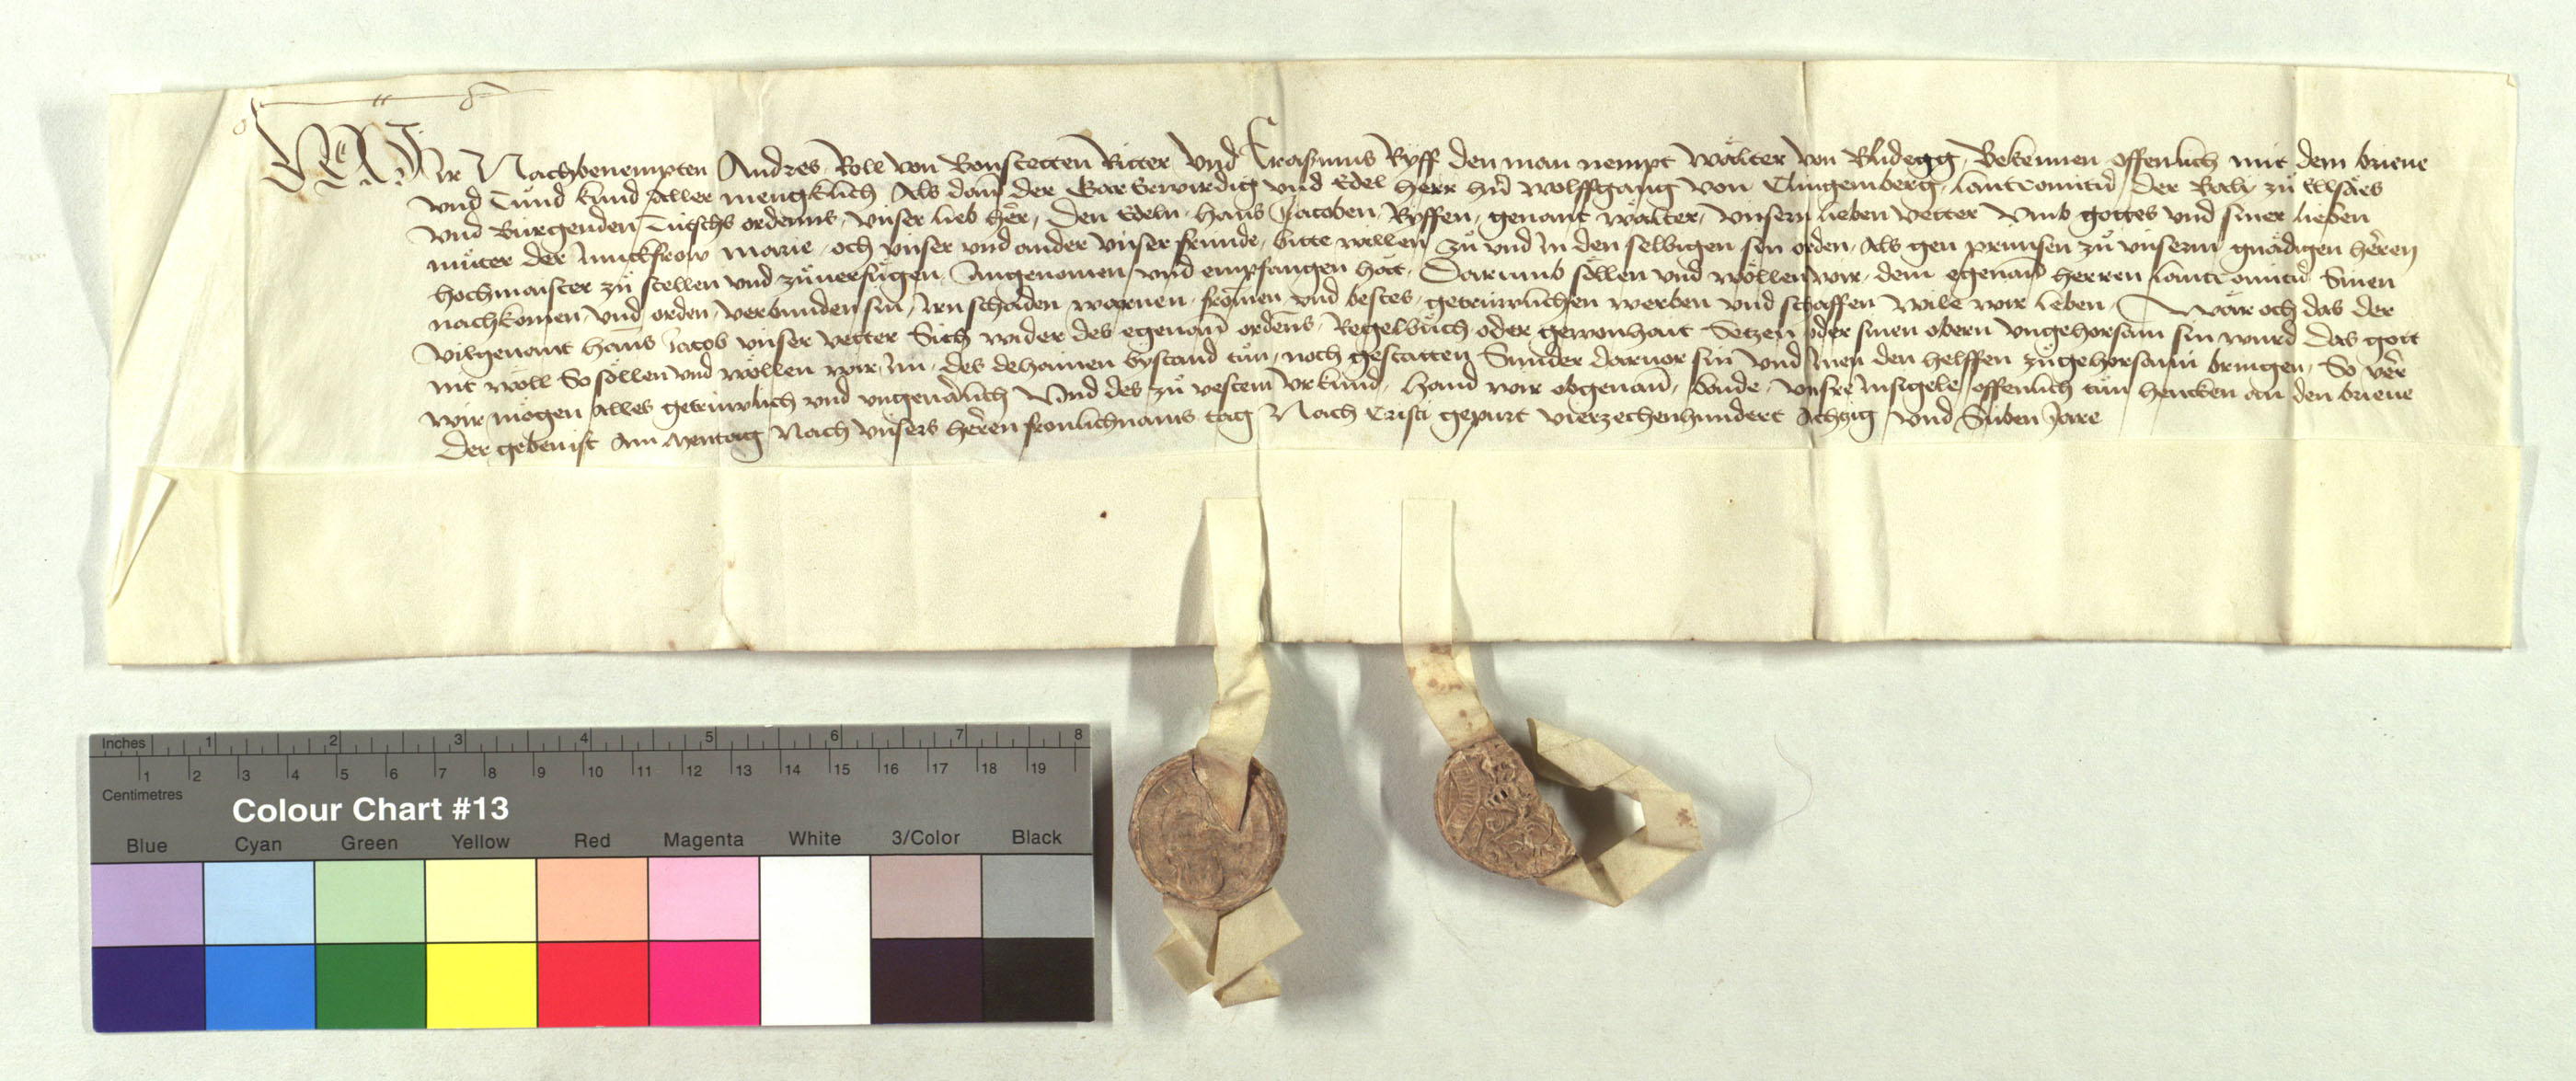 WIr Nachbenempten Andres Roll von Bonstetten Ritter Vnd Erasmus Ryff den man nempt Wälter von Blidegg, Bekennen offenlich mit dem brieue
vnd Tund kund Aller mengklich Als dann der Eerwirdig vnd Edel Herr hr̄ Wolffgang von Clingemberg, lantcomitur der Baly zů Elsäs
vnd Burgenden Tütschs ordenns, vnser lieb her, Den Edeln, Hans Jacoben, Ryffen, genant Wälter, vnsern lieben Vetter Vmb gottes vnd siner lieben
můter der Junckfrow marie, och vnser vnd ander vnser fründe, bitte willen, Zů vnd In den selbigen sin orden, Als gen prünsen zů vnserm gnädigen heren
hochmaister zů stellen vnd zůuerfůgen, Angenomen, vnd empfangen hät, Darumb söllen vnd wöllen wir, dem egenan̄ Herren lantcomitur Sinen
nachkomen, vnd orden, verbunden sin, Irn schaden warnen, fromen vnd bestes, getrüwlichen werben vnd schaffen wile wir leben, Wär och das der
vilgenant Hanns Jacob vnser vetter Sich wider des egenan̄ ordens, Regelbůch oder gewonhait Setzen oder sinen obern vngehorsam sin wurd das gott
nit wöll So söllen vnd wöllen wir, Im, des dehainen bystand tůn, noch gestatten Sunder daruor sin vnd Inen den helffen zůgehorsami bringen, So ver
wir mögen Alles getrüwlich vnd vngeuarlich Vnd des zů vestem vrkund, Hand wir obgenan̄, baide, vnsre Insigele offenlich tůn hencken an den brieue
Der geben ist Am Mentag Nach vnsers heren fronlichnams tag Nach Cristi gepurt vierzechenhundert Achtzig vnd Siben Jare
Inches 1 2 3 4 5 6 7 8
1 2 3 4 5 6 7 8 9 10 11 12 13 14 15 16 17 18 19
Centimetres
Colour Chart #13
Blue Cyan Green Yellow Red Magenta White 3/Color Black